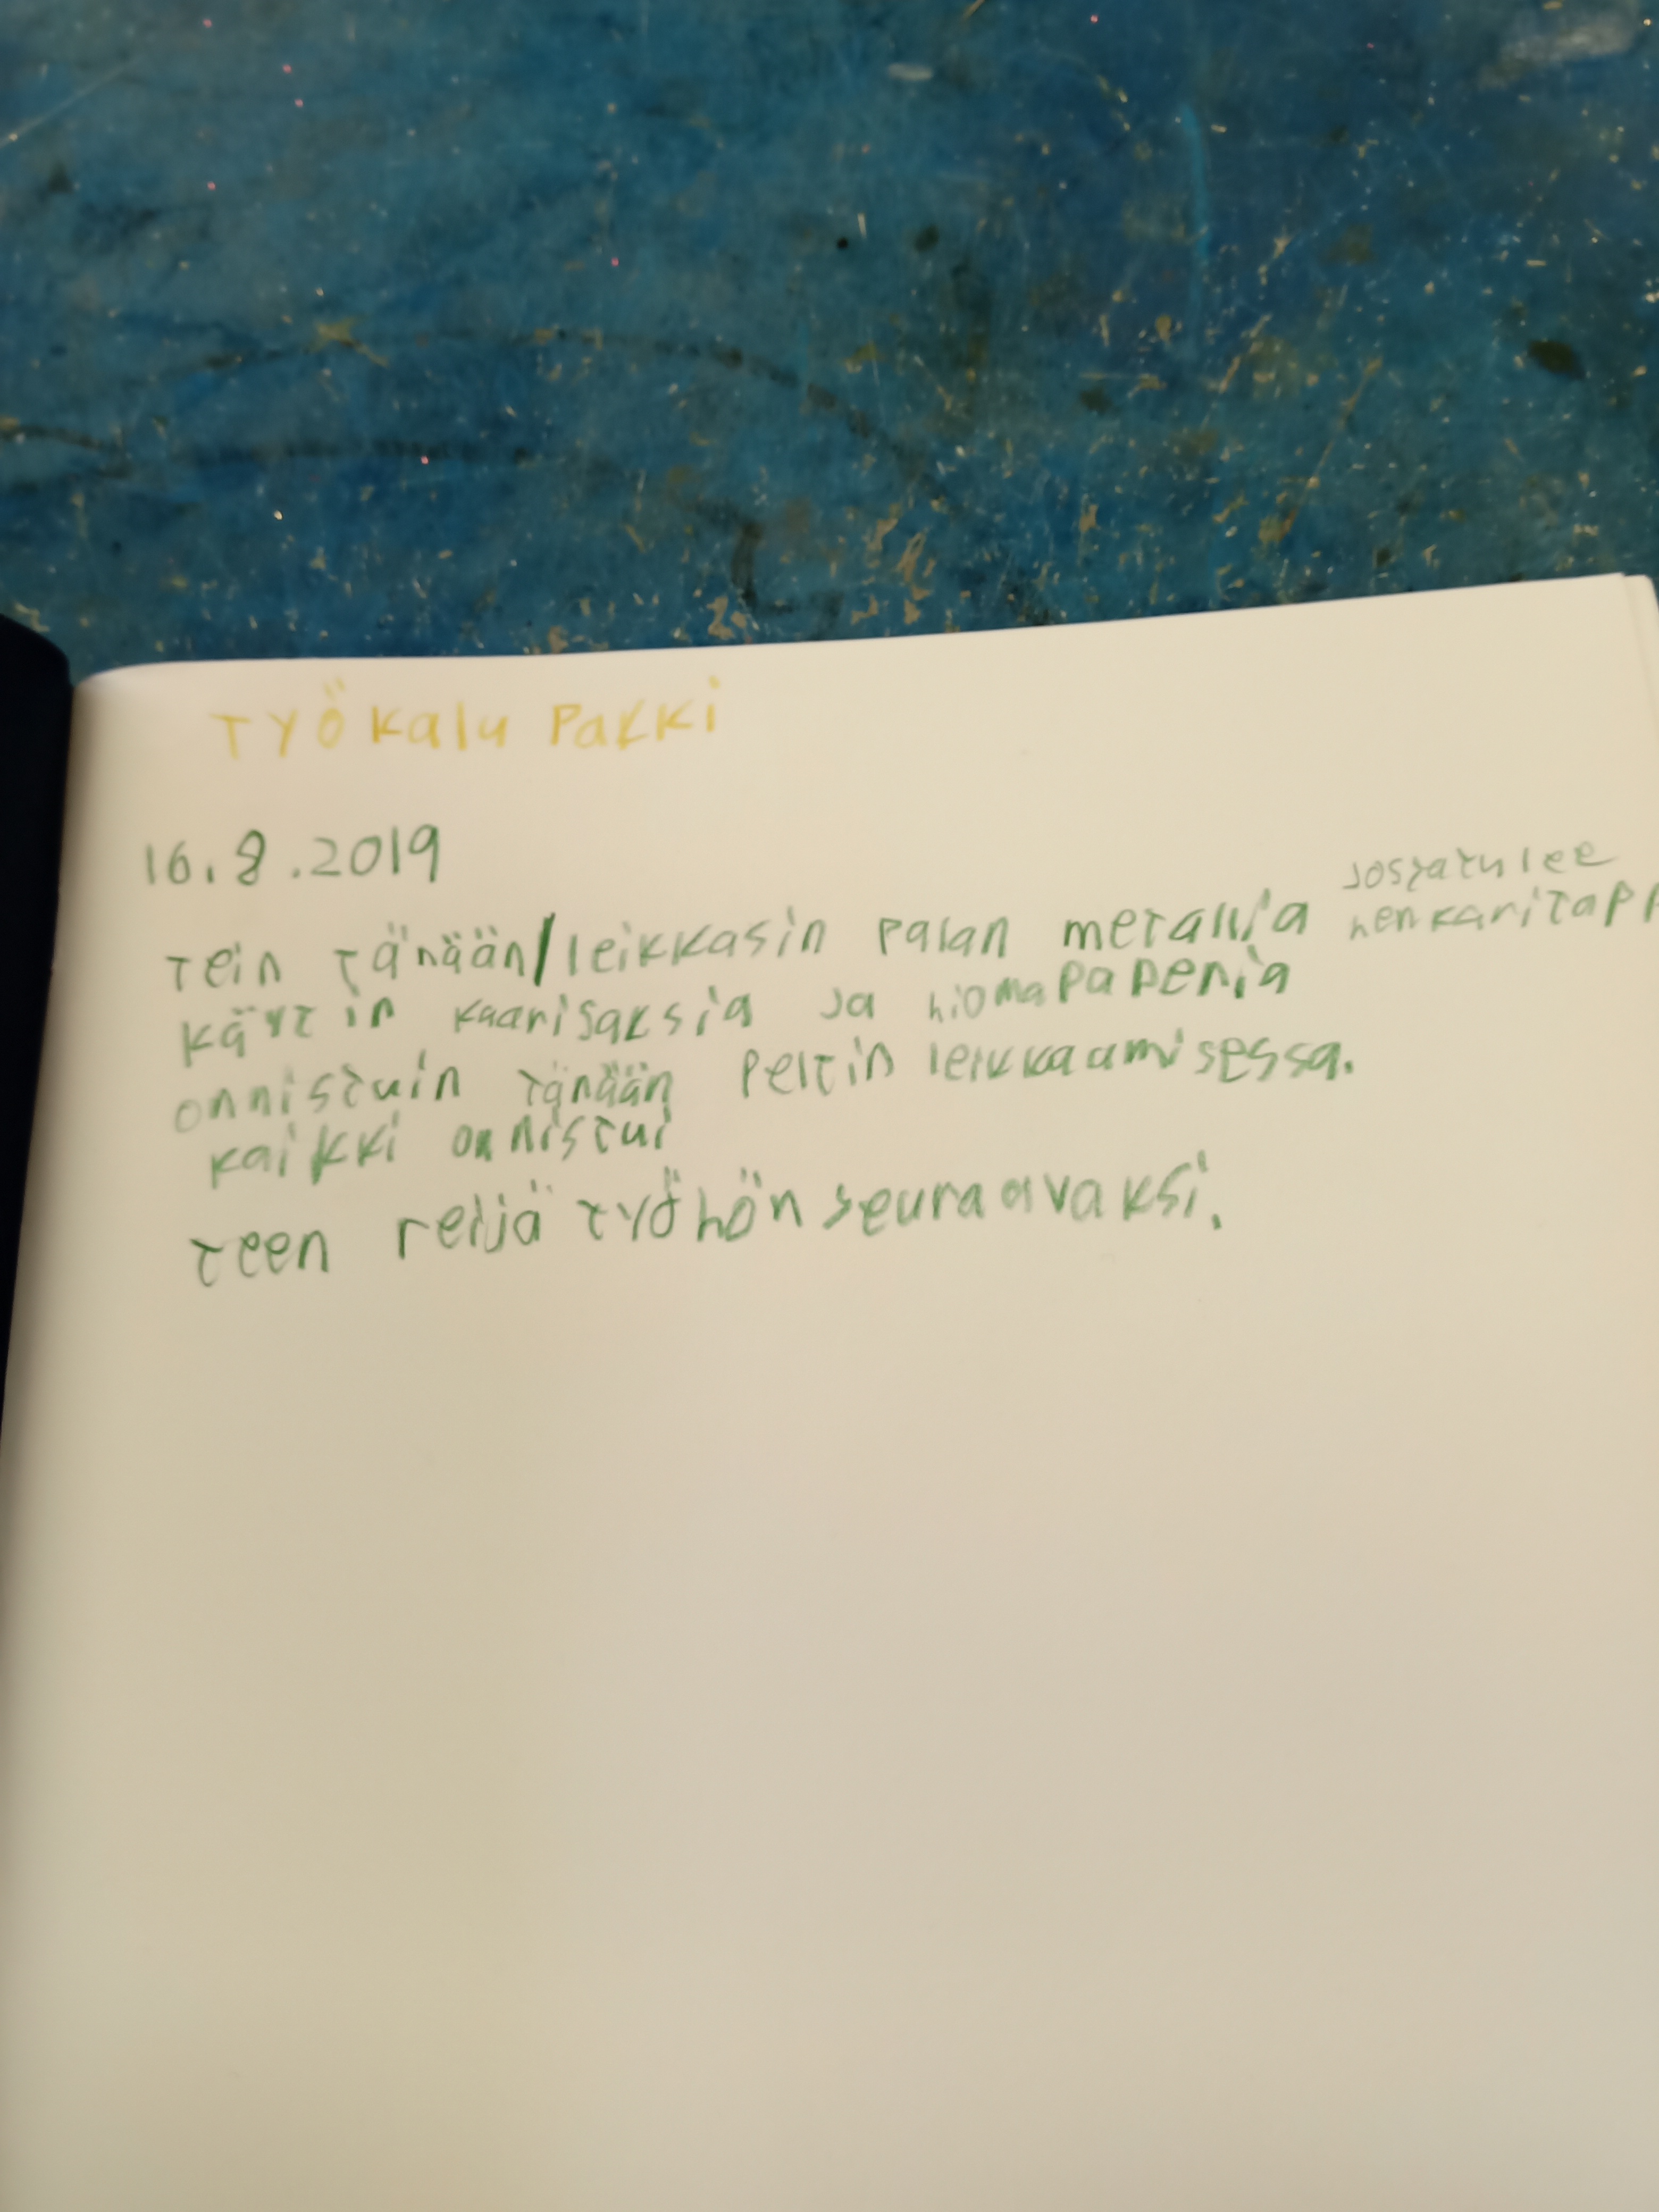 TYÖkalu Pakki
16.8.2019
tein tänään/leikkasin palan metallia
josta tulee
henkaritapp
kävtin kaarisaksia ja hiomapaperia
onnistuin tänään peltin leikkaamisessa.
kaikki onnistui
teen reijä työhön seuraavaksi.